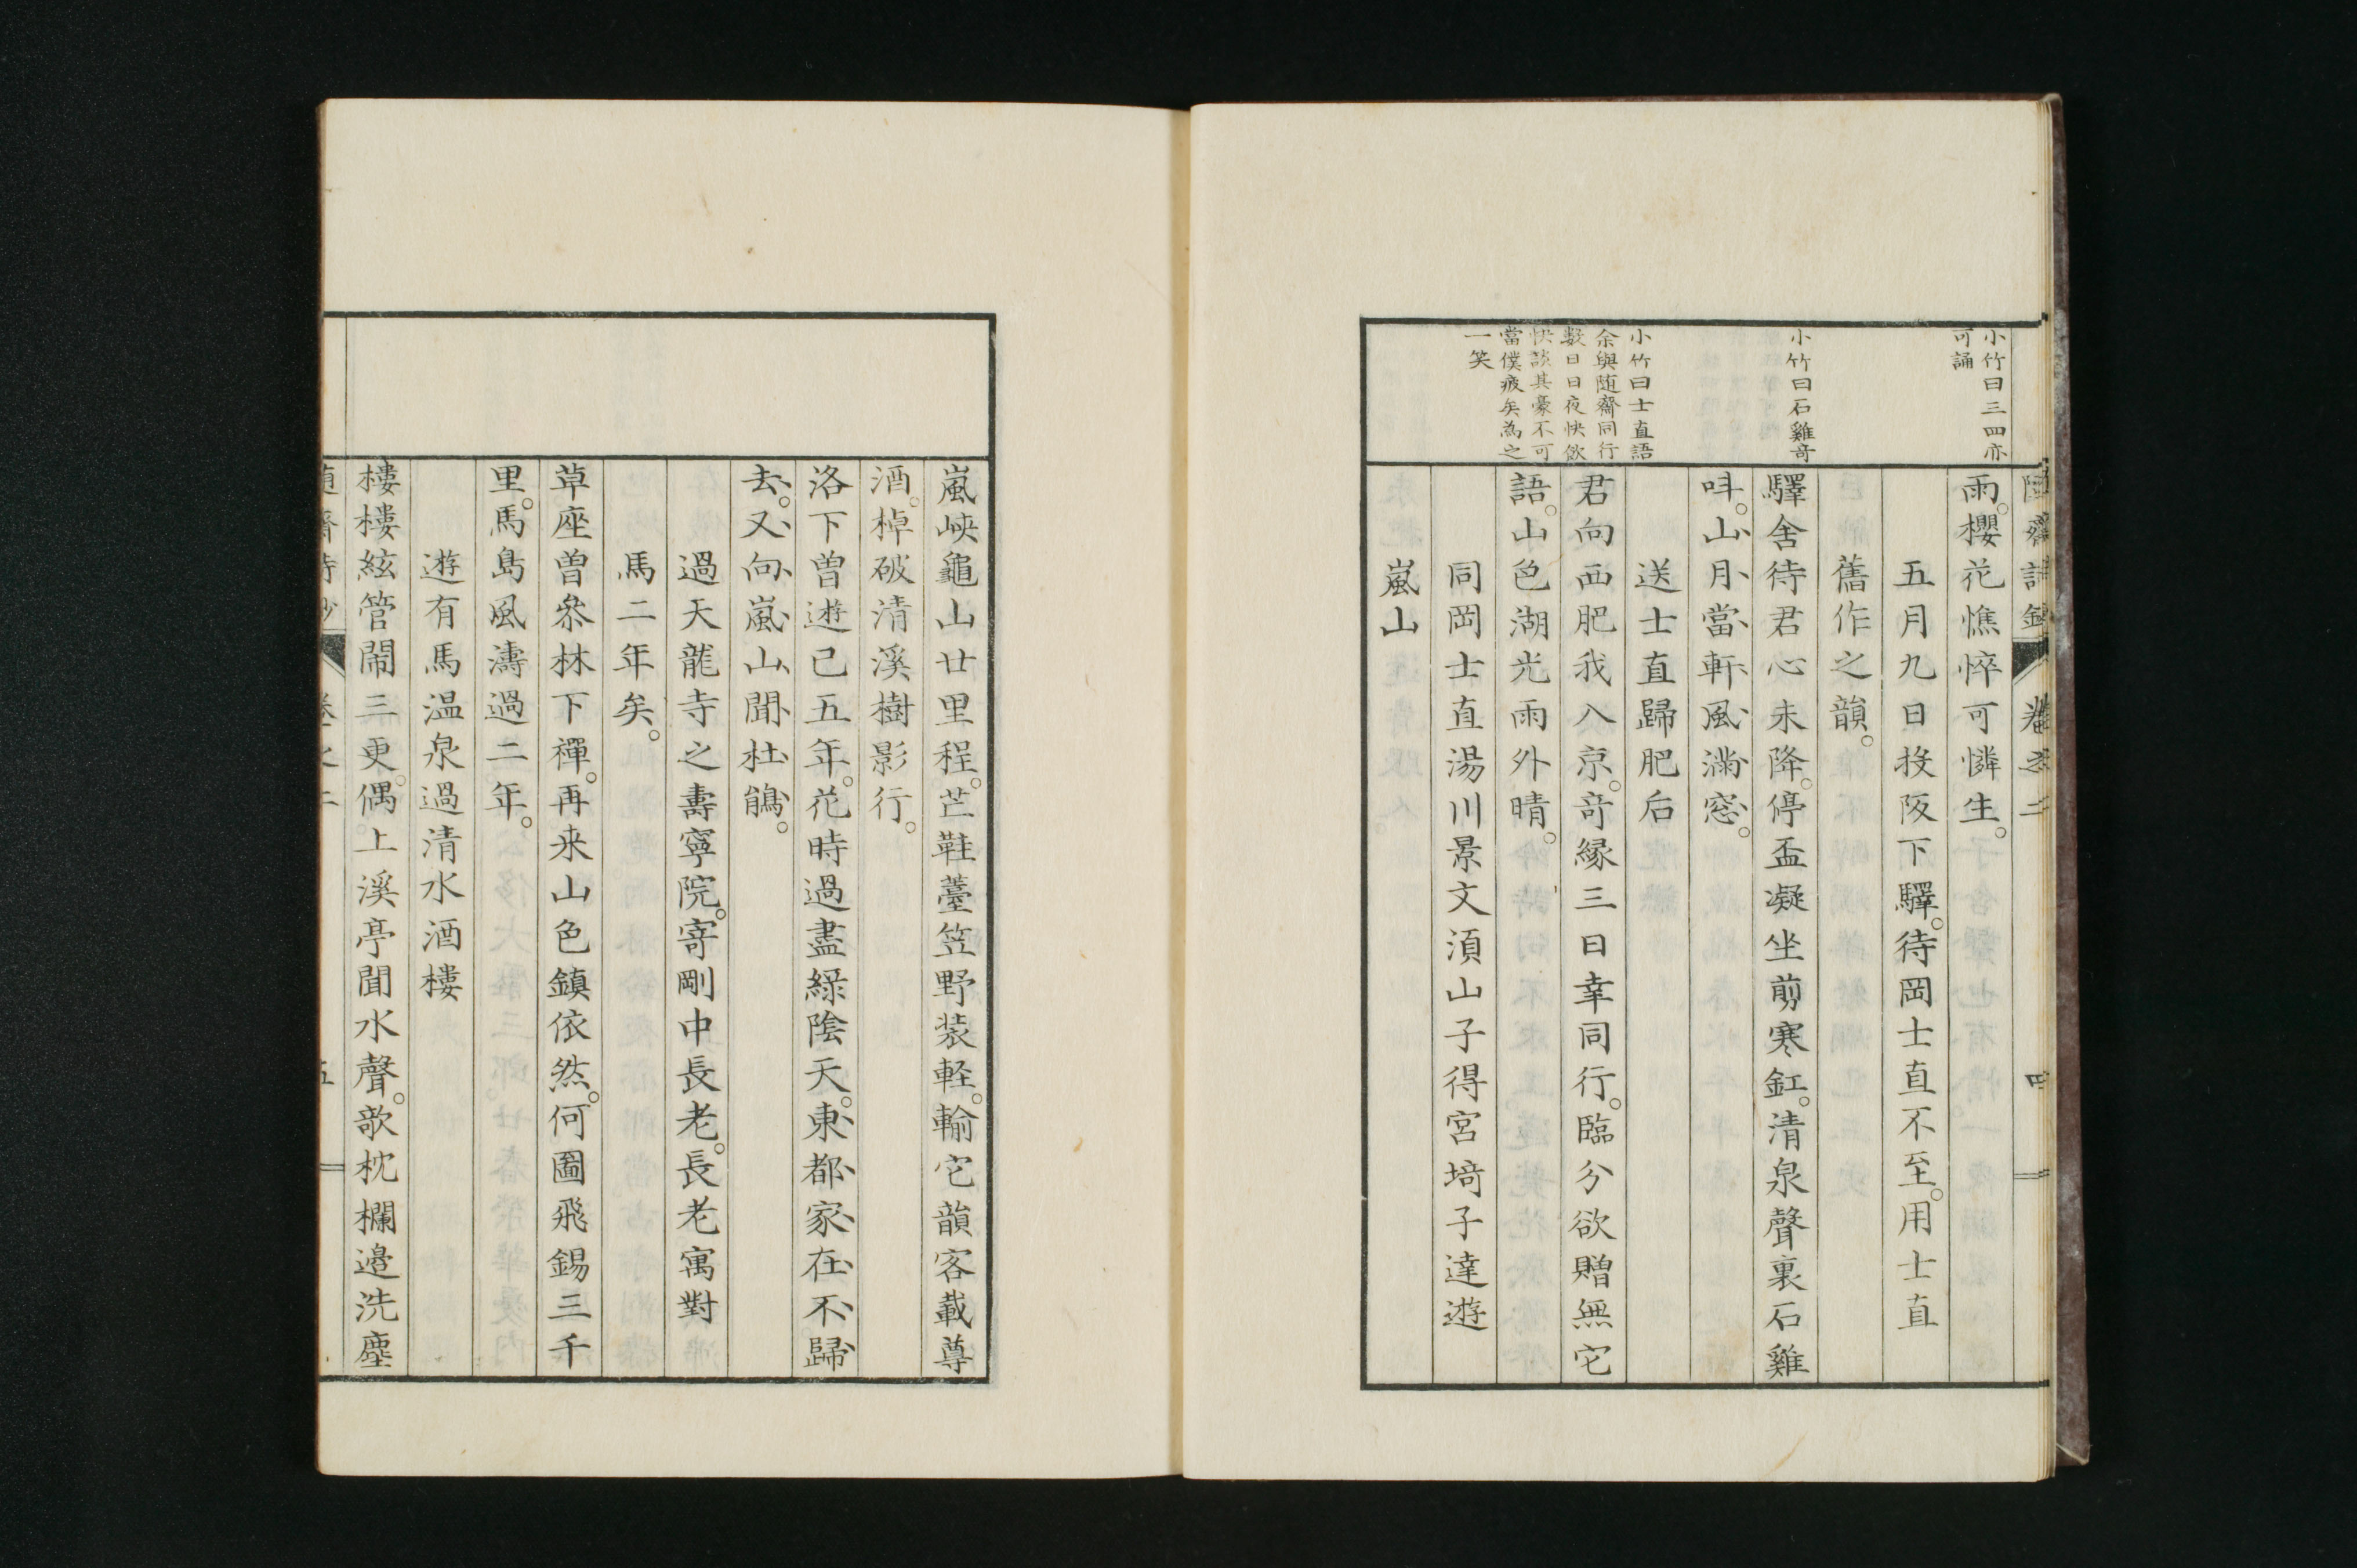 隨齋詩鈔 卷之二 四
小竹曰三四亦
可誦
雨。櫻花憔悴可憐生。
五月九日投阪下驛。待岡士直不至。用士直
舊作之韻。
小竹曰石雞奇
驛舍待君心未降。停盃凝坐剪寒釭。清泉聲裏石雞
吽。山月當軒風滿窓。
送士直歸肥后
小竹曰士直語
余與随齋同行
數日日夜快飲
快談其豪不可
當僕疲矣為之
一笑
君向西肥我入京。奇縁三日幸同行。臨分欲贈無它
語。山色湖光雨外晴。
同岡士直湯川景文湏山子得宮埼子達遊
嵐山
嵐峽龜山廿里程。芒鞋薹笠野装軽。輸它韻客載尊
酒。棹破清溪樹影行。
洛下曽遊已五年。花時過盡緑陰天。東都家在不歸
去。又向嵐山聞杜鵑。
過天龍寺之壽寧院。寄剛中長老。長老寓對
馬二年矣。
草座曽叅林下禪。再来山色鎮依然。何圖飛錫三千
里。馬島風濤過二年。
遊有馬温泉過清水酒樓
樓樓絃管鬧三更。偶上溪亭聞水聲。欹枕欄邉洗塵
随齋詩鈔 卷之二 五